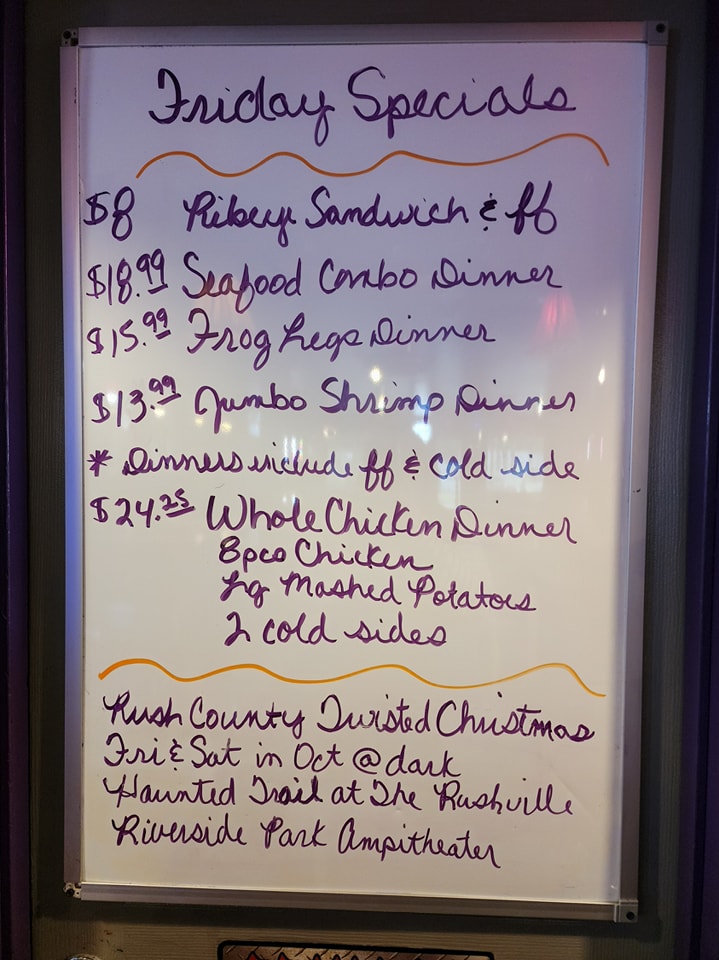 Friday Specials
$8 Ribeye Sandwich & ff
$18.99 Seafood Combo Dinner
$15.99 Frog Legs Dinner
$13.99 Jumbo Shrimp Dinner
* Dinners include ff & cold side
$24.25 Whole Chicken Dinner
8pcs Chicken
Lg Mashed Potatoes
2 cold sides
Rush County Twisted Christmas
Fri & Sat in Oct @ dark
Haunted Trail at The Rushville
Riverside Park Ampitheater